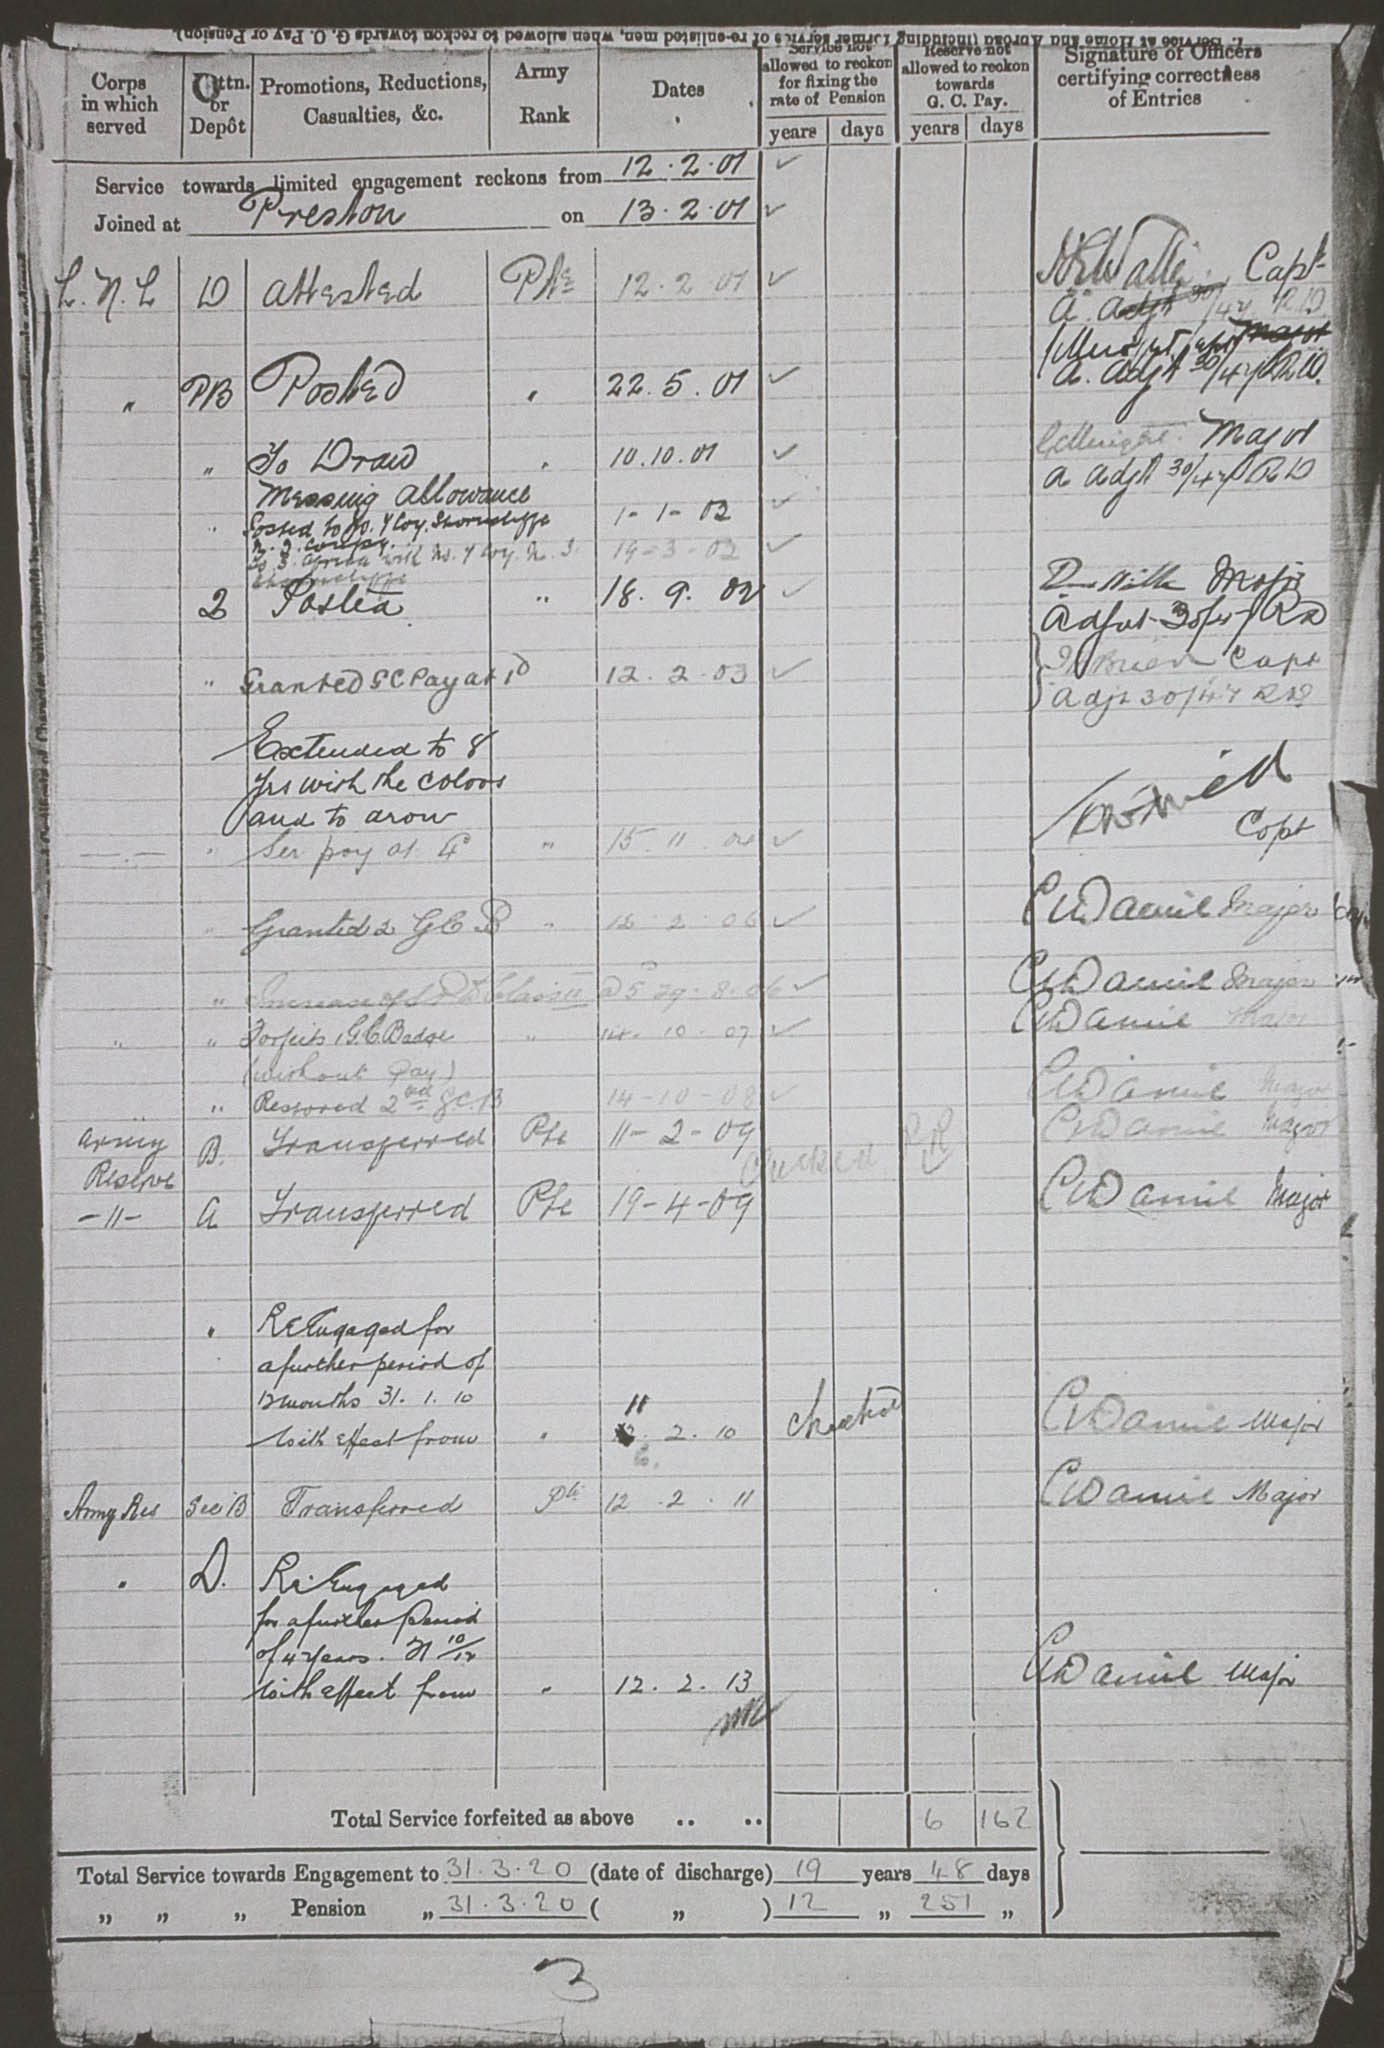 2. Service at Home and Abroad (including former service of re-enlisted men, when allowed to reckon towards G. C. Pay or Pension).
Corps in which served
Bttn. or Depôt
Promotions, Reductions, Casualties, &c.
Army Rank
Dates
Service not allowed to reckon for fixing the rate of Pension
years days
Reserve not allowed to reckon towards G. C. Pay.
years days
Signature of Officers certifying correctness of Entries
Service towards limited engagement reckons from 12.2.01
Joined at Preston on 13.2.01
L. N. L D Attested Pte 12.2.01 Capt
A. Adjt 30/47 R D
" PB Posted " 22.5.01
A. Adjt 30/47 R.D.
" To Draw " 10.10.01 Major
Messing Allowance A Adjt 30/47 R D
" Posted to No. 4 Coy. Shorncliffe 1-1-02
M. I. Compy.
To S. Africa with No. 4 Coy. M. I. 19-3-02
Shorncliffe
2 Posted " 18.9.02 Major
Adjut 30/47 RD
" Granted GC Pay at 1d 12.2.03 Capt
Adjt 30/47 RD
Extended to 8
yrs with the colors
and to draw
—.— " Ser pay at " 15.11.04 Capt
" Granted 2 GC B " 12.2.06 Major
" Increase of Class II 29.8.06 Major
" " Forfeits 1 G.C. Badge " 14.10.07 Major
(without Pay)
" " Restored 2nd G.C.B 14-10-08 Major
Army Reserve B. Transferred Pte 11-2-09 Major
Checked
-"- A Transferred Pte 19-4-09 Major
" Re Engaged for
a further period of
12 months 31.1.10 11
with effect from " 12.2.10 Checked Major
Army Res Sec B Transferred Pte 12.2.11 Major
" D. Re Engaged
for a further period
of 4 years.
with effect from " 12.2.13 Major
Total Service forfeited as above .. .. 6 162
Total Service towards Engagement to 31.3.20 (date of discharge) 19 years 48 days
" " " Pension " 31.3.20 ( " ) 12 " 251 "
3
Copyright Images reproduced by courtesy of The National Archives, London